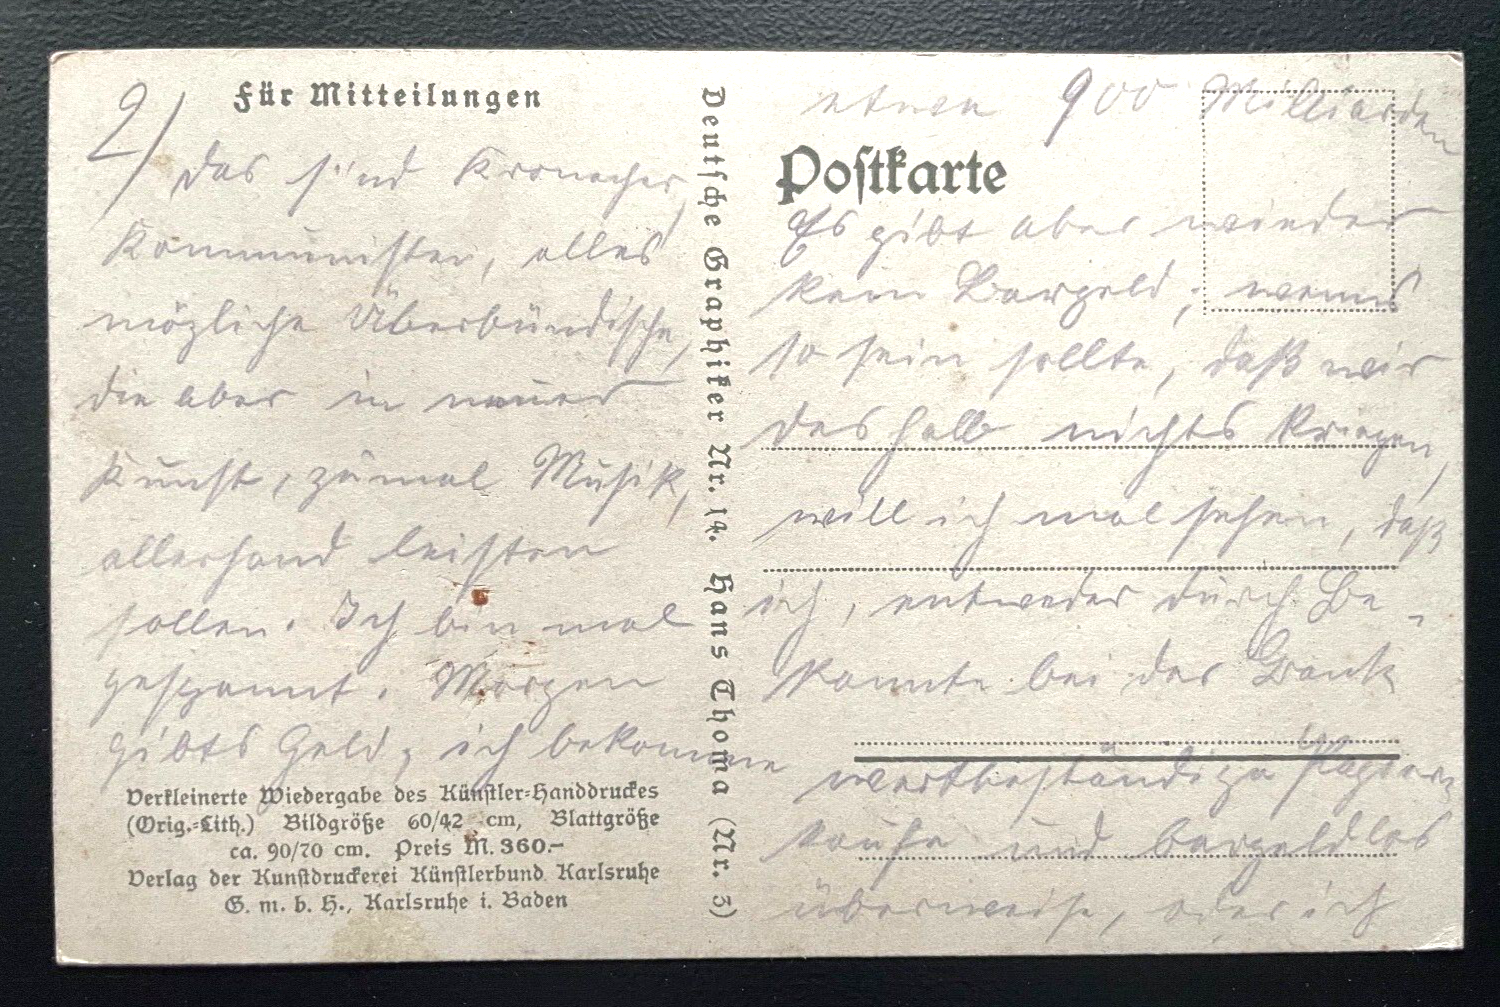 Für Mitteilungen
2)
Das sind Kronacher,
Kommunisten, alles
mögliche Überbündische,
die aber in neuer
Kunst, zumal Musik,
allerhand leisten
sollen. Ich bin mal
gespannt. Morgen
gibts Geld, ich bekomme
Verkleinerte Wiedergabe des Künstler-Handdruckes
(Orig.-Lith.) Bildgröße 60/42 cm, Blattgröße
ca. 90/70 cm. Preis M. 360.-
Verlag der Kunstdruckerei Künstlerbund Karlsruhe
G. m. b. H., Karlsruhe i. Baden
Deutsche Graphiker Nr. 14. Hans Thoma (Nr. 3)
etwa 900 Milliarden
Postkarte
Es gibt aber wieder
kein Bargeld; wenns
so sein sollte, daß wir
deshalb nichts kriegen,
will ich mal sehen, daß
ich, entweder durch Be-
kannte bei der Bank
wertbeständige Papiere
kaufe und bargeldlos
überweise, oder ich